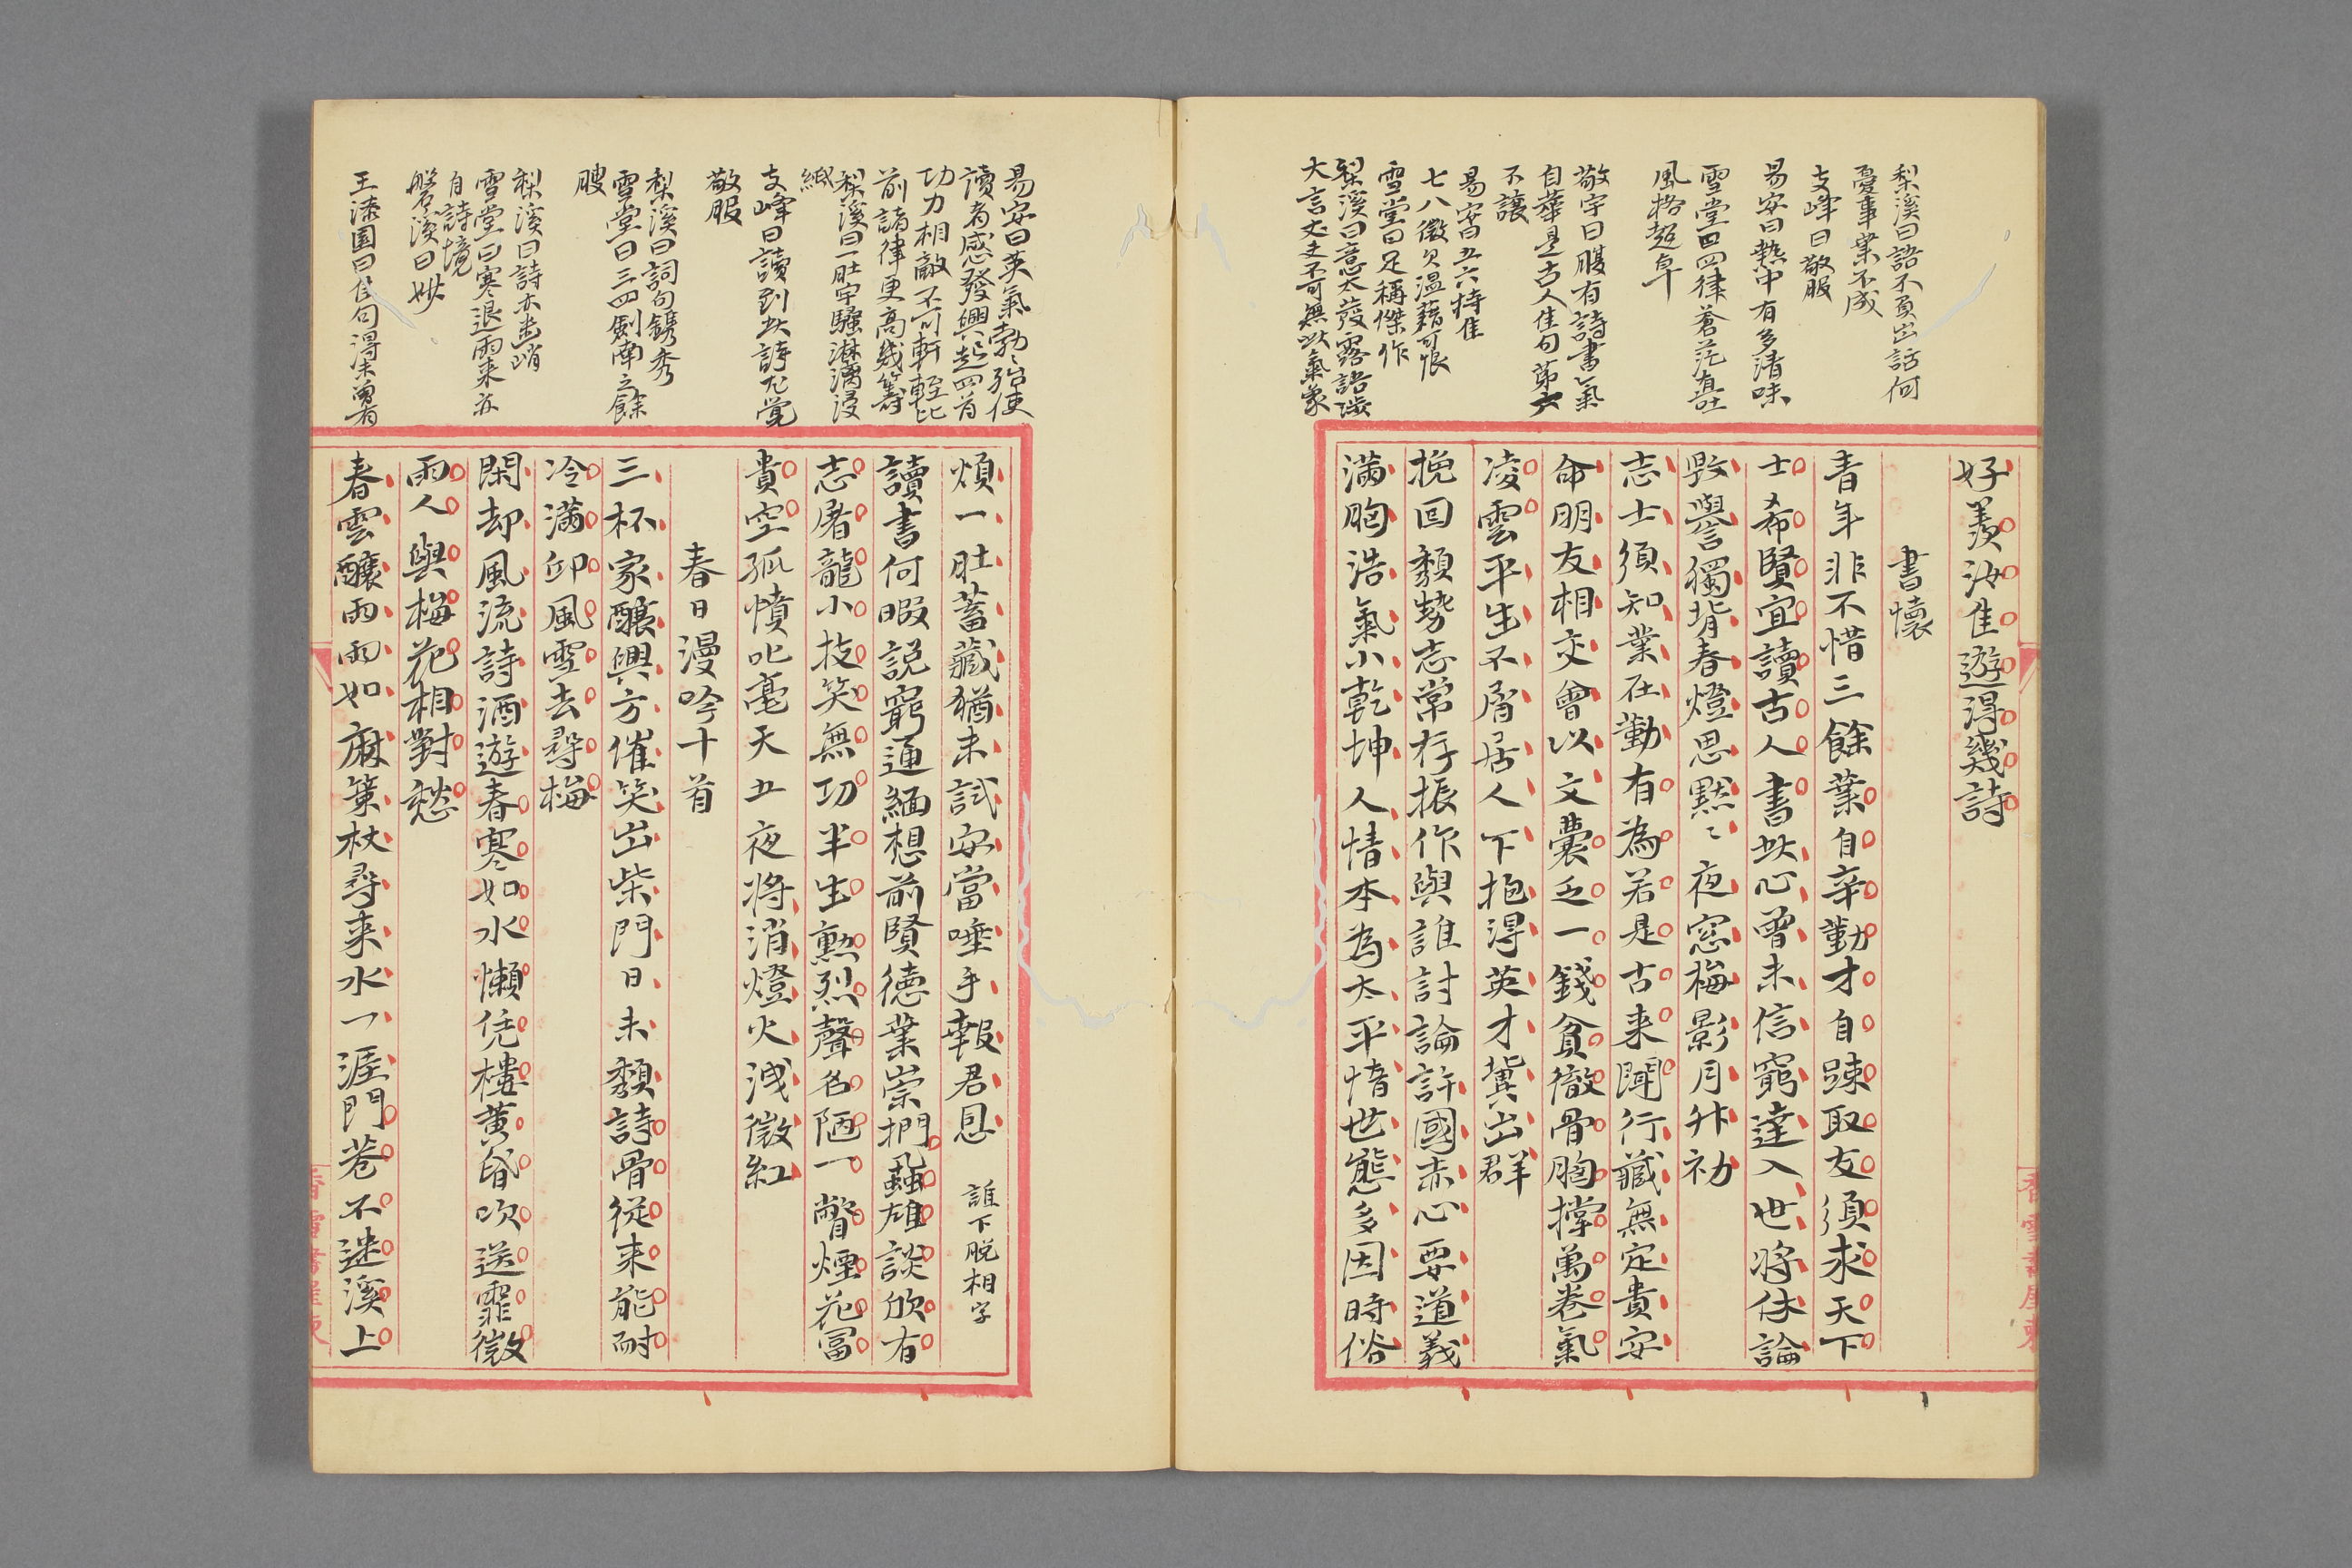 梨溪曰語不負出話何
憂事業不成
支峰曰敬服
易安曰熱中有多清味
雪堂曰四律蒼茫有
風格超卓
敬宇曰腹有詩書氣
自華是古人佳句第六
不讓
易安曰五六特佳
七八微欠温藉可恨
雪堂曰足稱傑作
梨溪曰意太發露語涉
大言丈夫不可無此氣象
好羨汝佳遊得幾詩
書懷
青年非不惜三餘業自辛勤才自踈取友須求天下
士希賢宜讀古人書此心曾未信窮達入世將休論
毀譽獨背春燈思黙々夜窓梅影月升初
志士須知業在勤有為若是古来聞行藏無定貴安
命朋友相交會以文囊乏一錢貧徹骨胸撐萬卷氣
凌雲平生不屑居人下抱得英才冀出群
挽回頽勢志常存振作與誰討論許國赤心要道義
滿胸浩氣小乾坤人情本為太平惰世態多因時俗
易安曰英氣勃々強使
讀者感發興起四首
功力相敵不可軒輊比
前諸律更高幾籌
梨溪曰一肚牢騷淋漓浸
紙
支峰曰讀到此詩尤覚
敬服
梨溪曰詞句鐫秀
雪堂曰三四劍南之餘
膄
梨溪曰詩亦峭
雪堂曰寒退雨来亦
自詩境
磐溪曰妙
王漆園曰佳句得未曽有
煩一肚蓄藏猶未試安當唾手報君恩 誰下脱相字
讀書何暇説窮通緬想前賢徳業崇捫蝨雄談欣有
志屠龍小技笑無功半生勲烈聲名陋一瞥煙花冨
貴空孤憤叱毫天五夜将消燈火洩微紅
春日漫吟十首
三杯家釀興方催笑出柴門日未頽詩骨従来能耐
冷滿卬風雪去尋梅
閑却風流詩酒遊春寒如水懶凭樓黄昏吹送霏微
雨人與梅花相對愁
春雲釀雨雨如麻策杖尋来水一涯門巷不迷溪上